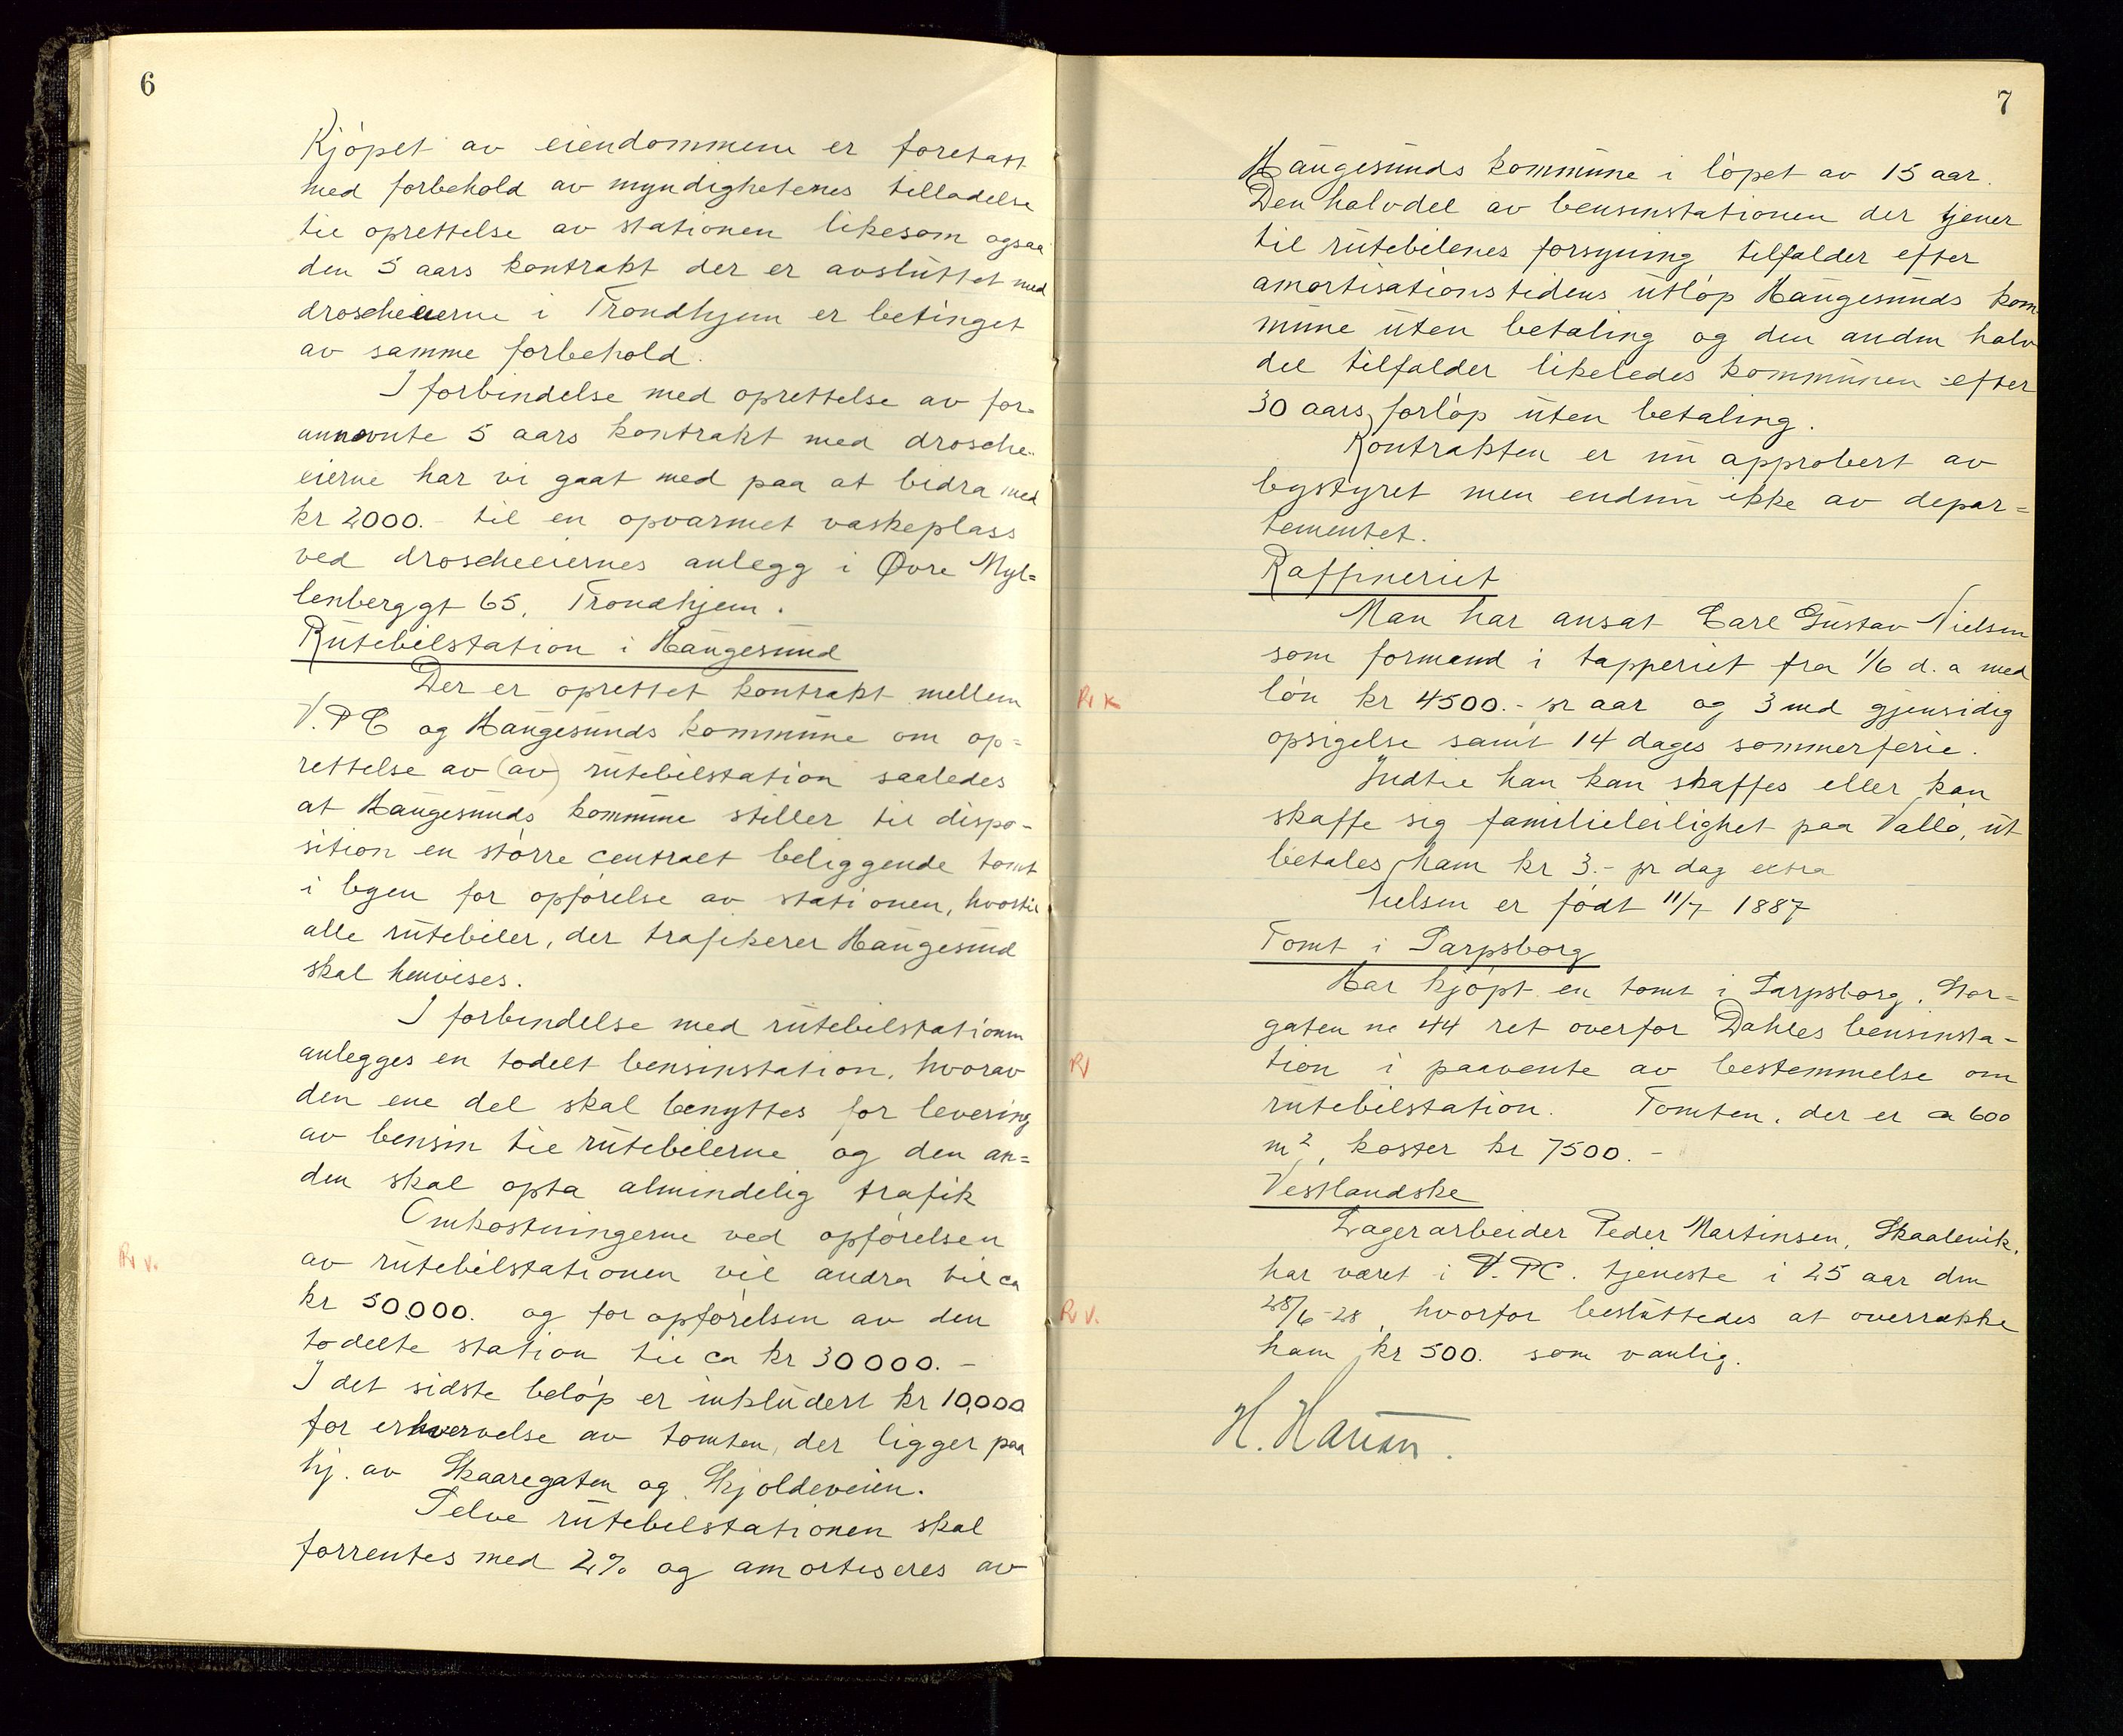 6
Kjöpet av eiendommene er foretatt
med forbehold av myndighetenes tilladelse
til oprettelse av stationen likesom ogsaa
den 5 aars kontrakt der er avsluttet med
droscheeierne i Trondhjem er betinget
av samme forbehold.
I forbindelse med oprettelse av for-
annevnte 5 aars kontrakt med drosche-
eierne har vi gaat med paa at bidra med
kr 2000.- til en opvarmet vaskeplass
ved droscheeiernes anlegg i Øvre Myl=
lenberggt 65, Trondhjem.
Rutebilstation i Haugesund
Der er oprettet kontrakt mellem
V.P.C og Haugesunds kommune om op=
rettelse av (av) rutebilstation saaledes
at Haugesunds kommune stiller til dispo-
sition en större centralt beliggende tomt
i byen for opförelse av stationen, hvortil
alle rutebiler, der trafikerer Haugesund
skal henvises.
I forbindelse med rutebilstationen
anlegges en todelt bensinstation, hvorav
den ene del skal benyttes for levering
av bensin til rutebilerne og den an=
den skal opta almindelig trafik
Omkostningerne ved opförelsen
av rutebilstationen vil andra til ca
kr 50.000. og for opförelsen av den
todelte station til ca kr 30000.-
I det sidste belöp er inkludert kr 10,000
for erhvervelse av tomten, der ligger paa
hj. av Skaaregaten og Skjoldeveien.
Selve rutebilstationen skal
forrentes med 2% og amortiseres av
R v.
7
Haugesunds kommune i löpet av 15 aar.
Den halvdel av bensinstationen der tjener
til rutebilenes forsyning tilfalder efter
amortisationstidens utlöp Haugesunds kom
mune uten betaling og den anden halv
del tilfalder likeledes kommunen efter
30 aars forlöp uten betaling.
Kontrakten er nu approbert av
bystyret men endnu ikke av depar=
tementet.
Raffineriet
Man har ansat Carl Gustav Nielsen
som formand i tapperiet fra 1/6 d.a med
R K
lön kr 4500.- pr aar og 3 md gjensidig
opsigelse samt 14 dages sommerferie.
Indtil han kan skaffes eller kan
skaffe sig familieleilighet paa Vallö, ut
betales ham kr 3.- pr dag extra
Nielsen er födt 11/7 1887
Tomt i Sarpsborg
Har kjöpt en tomt i Sarpsborg, Stor=
gaten no 44 ret overfor Dahles bensinsta-
R
tion i paavente av bestemmelse om
rutebilstation. Tomten, der er ca 600
m², koster kr 7500.-
Vestlandske
Lagerarbeider Peder Martinsen, Skaalevik,
har været i V.P.C. tjeneste i 25 aar den
R v.
28/6-28, hvorfor besluttedes at overrække
ham kr 500. som vanlig.